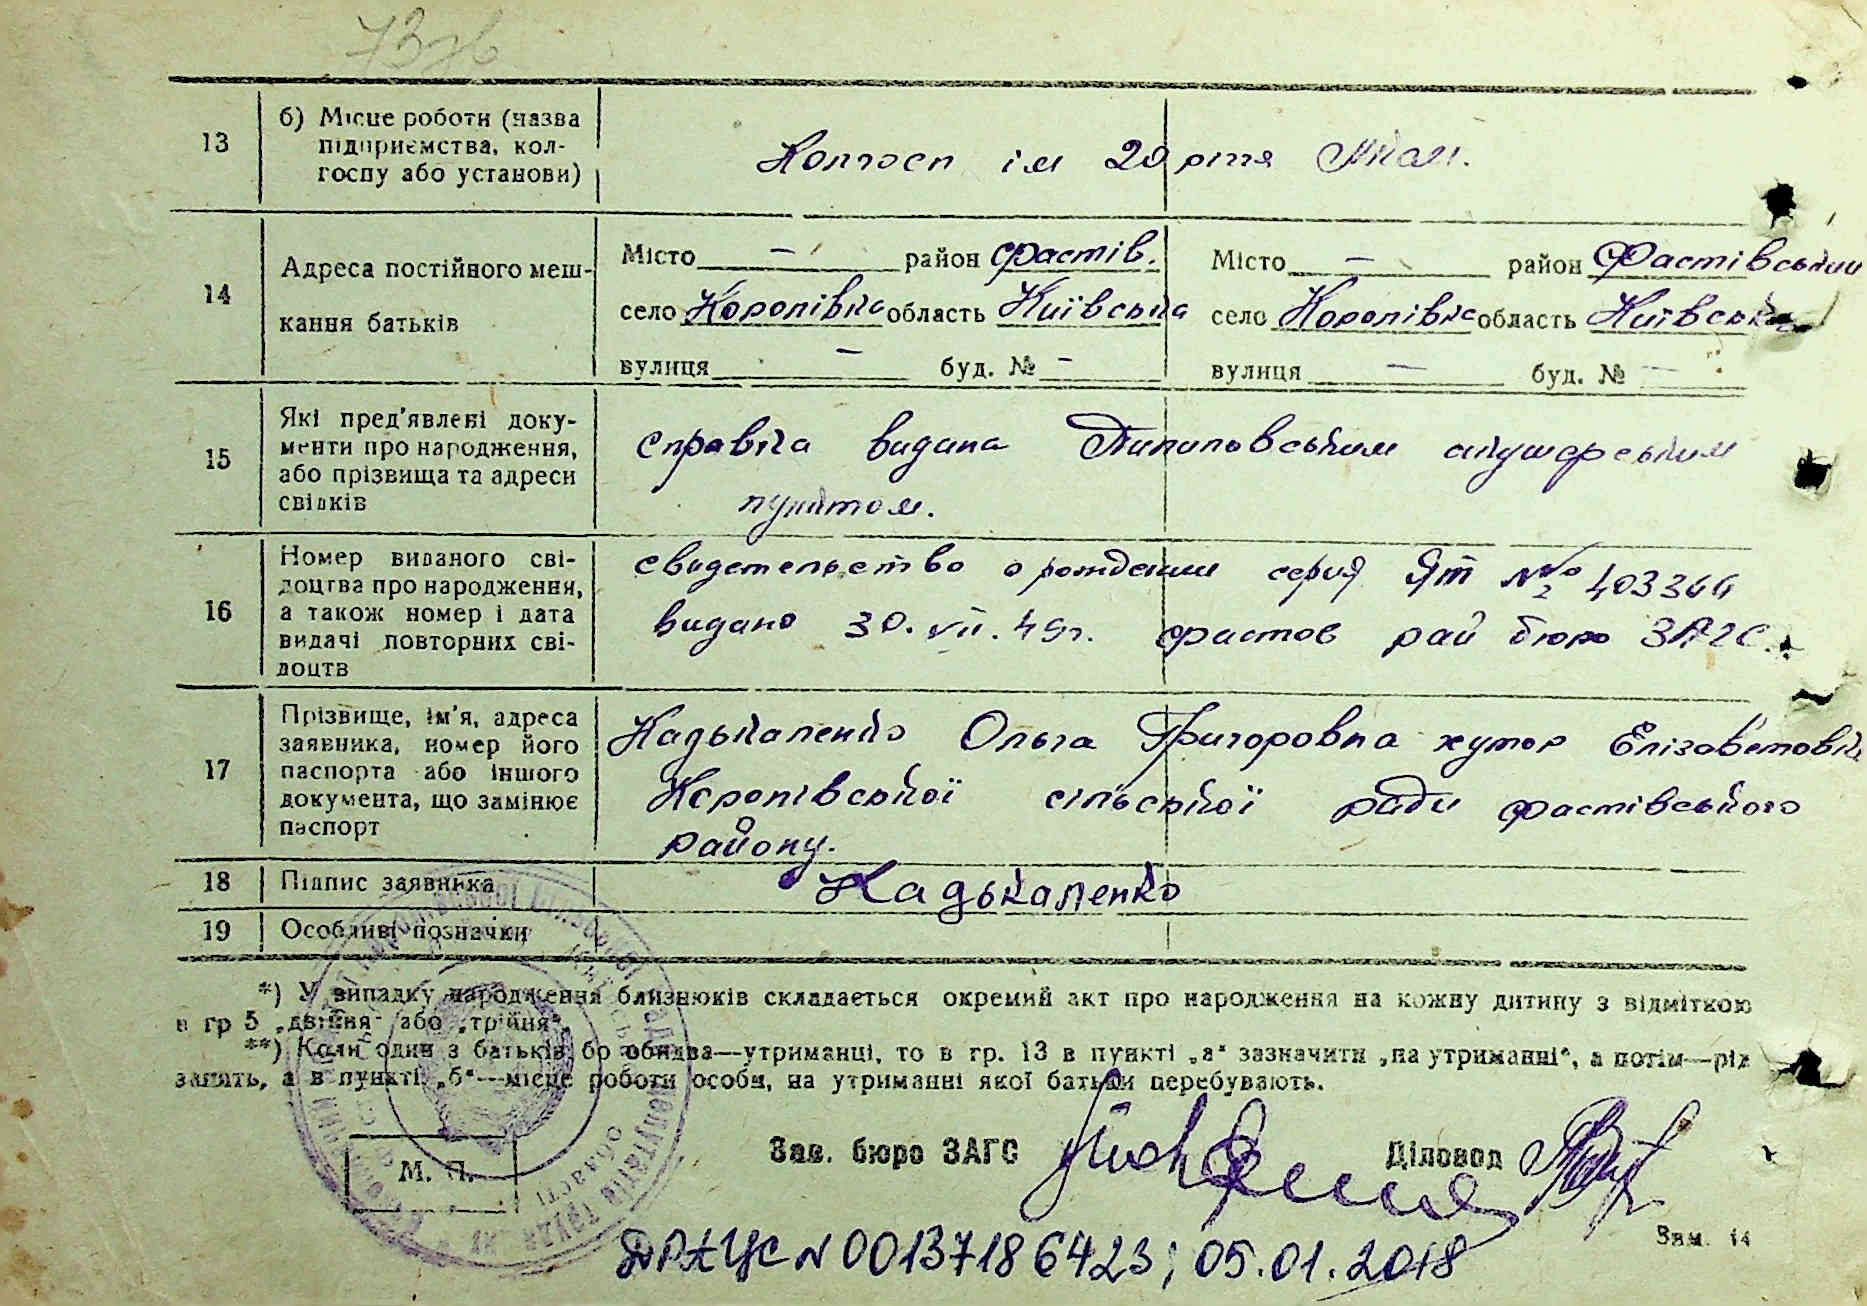 73 зв
13 б) Місце роботи (назва
підприємства, кол-
госпу або установи)
Колгосп ім 20 річчя
14 Адреса постійного меш-
кання батьків
Місто – район Фастів.
село Коропівка область Київська
вулиця – буд. № –
Місто – район Фастівський
село Коропівка область Київська
вулиця – буд. № –
15 Які пред'явлені доку-
менти про народження,
або прізвища та адреси
свідків
справка видана Пилиповським акушерським
пунктом.
16 Номер виданого сві-
доцтва про народження,
а також номер і дата
видачі повторних сві-
доцтв
свидетельство о рождении серия ЯТ № 403344
видано 30.VII.49г. Фастов рай бюро ЗАГС.
17 Прізвище, ім'я, адреса
заявника, номер його
паспорта або іншого
документа, що замінює
паспорт
Надькаленко Ольга Григоровна хутор Елізаветовка
Коропівської сільської ради Фастівського
району.
18 Підпис заявника
Надькаленко
19 Особливі позначки
*) У випадку народження близнюків складається окремий акт про народження на кожну дитину з відміткою
в гр 5 „двійня" або „трійня".
**) Коли один з батьків бо обидва—утриманці, то в гр. 13 в пункті „а" зазначити „на утриманні", а потім—рід
занять, а в пункті „б"—місце роботи особи, на утриманні якої батьки перебувають.
М. П.
Зав. бюро ЗАГС
Діловод
Зам. 14
ДРАЦС N 00137186423; 05.01.2018